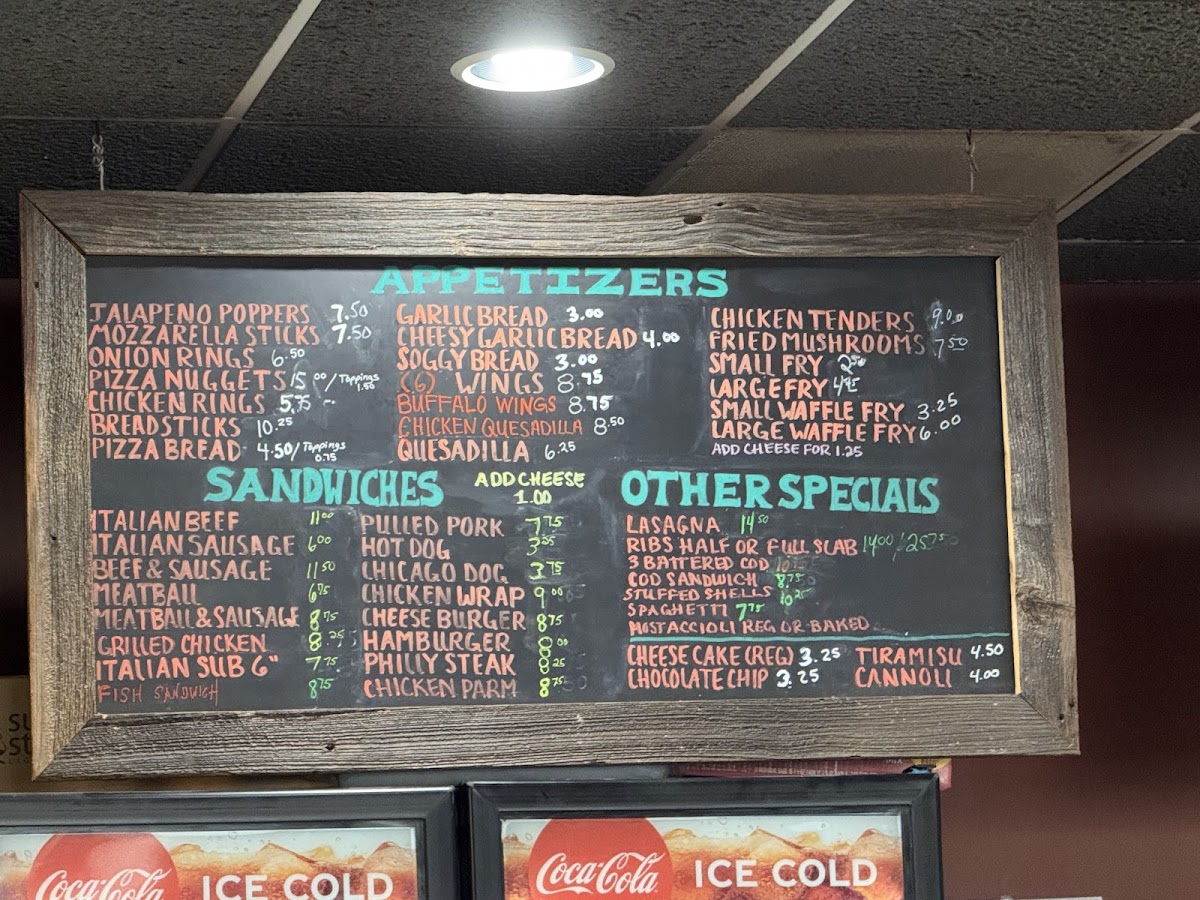 APPETIZERS
JALAPENO POPPERS 7.50
MOZZARELLA STICKS 7.50
ONION RINGS 6.50
PIZZA NUGGETS 15.00/Toppings 1.50
CHICKEN RINGS 5.75
BREADSTICKS 10.25
PIZZA BREAD 4.50/Toppings 0.75
GARLIC BREAD 3.00
CHEESY GARLIC BREAD 4.00
SOGGY BREAD 3.00
(6) WINGS 8.75
BUFFALO WINGS 8.75
CHICKEN QUESADILLA 8.50
QUESADILLA 6.25
CHICKEN TENDERS 9.00
FRIED MUSHROOMS 7.50
SMALL FRY 2.50
LARGE FRY
SMALL WAFFLE FRY 3.25
LARGE WAFFLE FRY 6.00
ADD CHEESE FOR 1.25
SANDWICHES
ADD CHEESE
1.00
ITALIAN BEEF 11.00
ITALIAN SAUSAGE 6.00
BEEF & SAUSAGE 11.50
MEATBALL 6.75
MEATBALL & SAUSAGE 8.75
GRILLED CHICKEN 8.25
ITALIAN SUB 6" 7.75
FISH SANDWICH 8.75
PULLED PORK 7.75
HOT DOG
CHICAGO DOG 3.75
CHICKEN WRAP 9.00
CHEESE BURGER 8.75
HAMBURGER 8.00
PHILLY STEAK 8.25
CHICKEN PARM 8.75
OTHER SPECIALS
LASAGNA 14.50
RIBS HALF OR FULL SLAB 14.00/
3 BATTERED COD
COD SANDWICH 8.75
STUFFED SHELLS 10.25
SPAGHETTI 7.75
MOSTACCIOLI REG OR BAKED
CHEESE CAKE (REG) 3.25
CHOCOLATE CHIP 3.25
TIRAMISU 4.50
CANNOLI 4.00
Coca-Cola ICE COLD
Coca-Cola ICE COLD